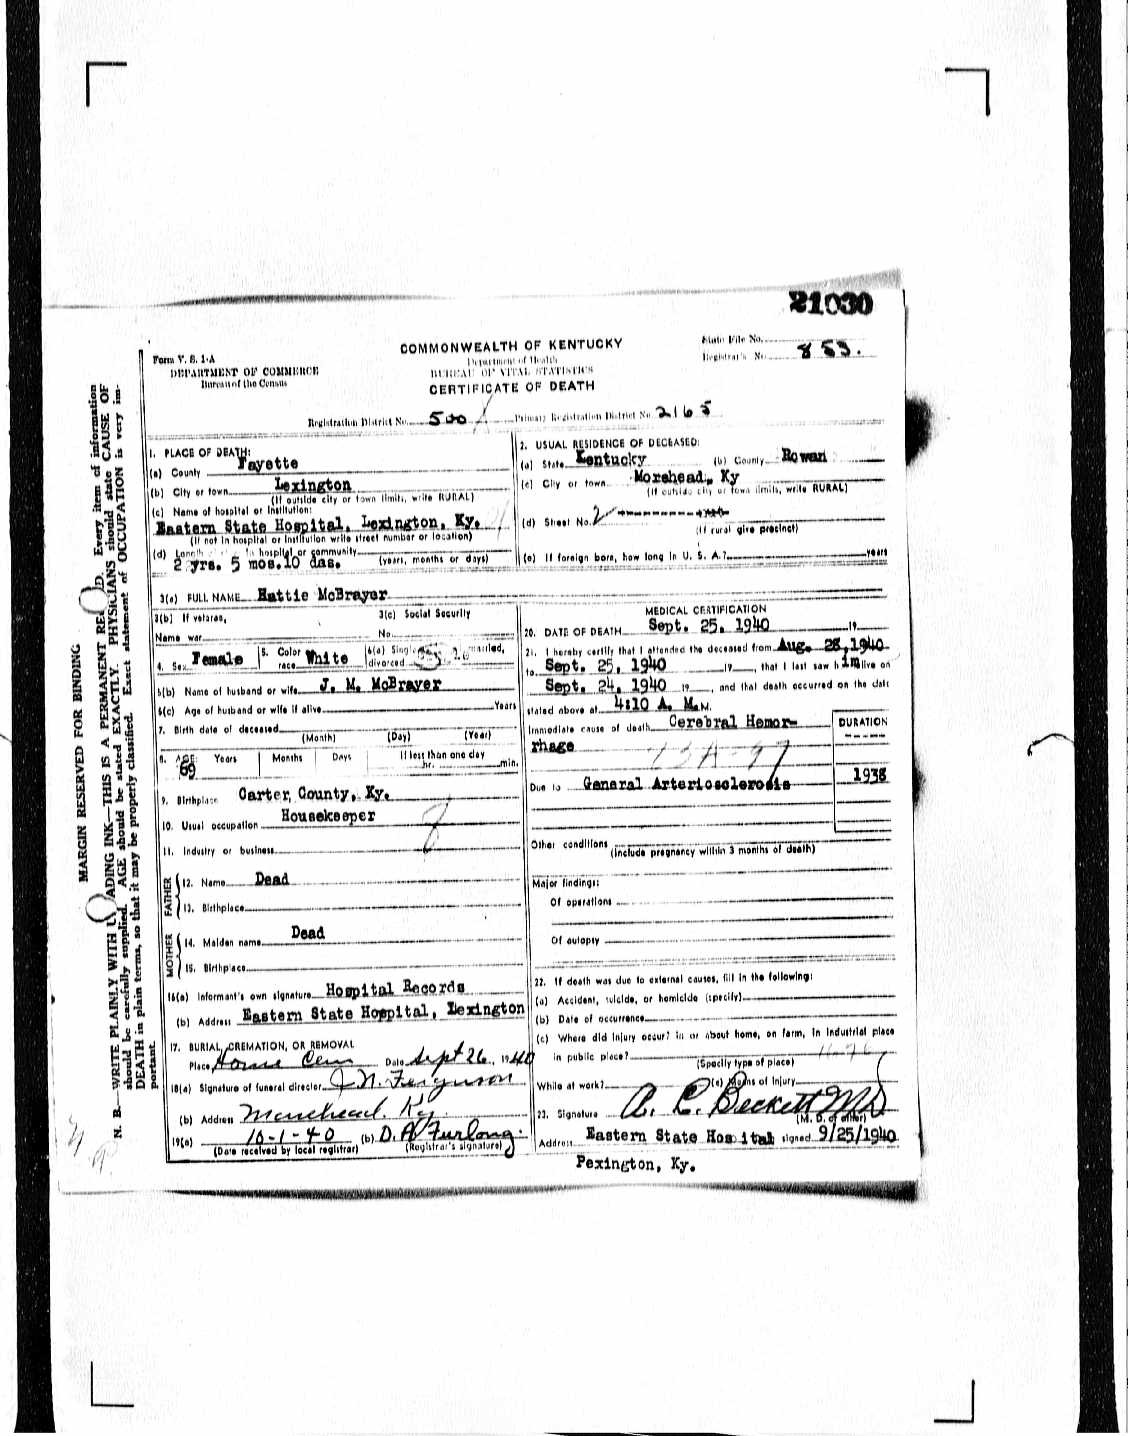 21030
COMMONWEALTH OF KENTUCKY
State File No.
Form V. S. 1-A
Department of Health
Registrar's No. 853.
DEPARTMENT OF COMMERCE
BUREAU OF VITAL STATISTICS
Bureau of the Census
CERTIFICATE OF DEATH
Registration District No. 500 Primary Registration District No. 2165
MARGIN RESERVED FOR BINDING
N. B.—WRITE PLAINLY WITH ADING INK—THIS IS A PERMANENT RE D. Every item of information
should be carefully supplied. AGE should be stated EXACTLY. PHYSICIANS should state CAUSE OF
DEATH in plain terms, so that it may be properly classified. Exact statement of OCCUPATION is very im-
portant.
1. PLACE OF DEATH:
(a) County Fayette
(b) City or town Lexington
(If outside city or town limits, write RURAL)
(c) Name of hospital or institution:
Eastern State Hospital, Lexington, Ky.
(If not in hospital or institution write street number or location)
(d) Length in hospital or community
2 yrs. 5 mos. 10 das. (years, months or days)
2. USUAL RESIDENCE OF DECEASED:
(a) State Kentucky (b) County Rowan
(c) City or town Morehead, Ky
(If outside city or town limits, write RURAL)
(d) Street No.
(If rural give precinct)
(e) If foreign born, how long in U. S. A.? years
3(a) FULL NAME Hattie McBrayer
3(b) If veteran, 3(c) Social Security
Name war No.
4. Sex Female 5. Color race White 6(a) Single married,
divorced
6(b) Name of husband or wife J. M. McBrayer
6(c) Age of husband or wife if alive Years
7. Birth date of deceased
(Month) (Day) (Year)
8. AGE: Years Months Days If less than one day
69 hr. min.
9. Birthplace Carter, County, Ky.
10. Usual occupation Housekeeper
11. Industry or business
FATHER
12. Name Dead
13. Birthplace
MOTHER
14. Maiden name Dead
15. Birthplace
16(a) Informant's own signature Hospital Records
(b) Address Eastern State Hospital, Lexington
17. BURIAL, CREMATION, OR REMOVAL
Place Cem Date Sept 26, 1940
18(a) Signature of funeral director J. N. Ferguson
(b) Address Morehead. Ky.
19(a) 10-1-40 (b) D. A. Furlong.
(Date received by local registrar) (Registrar's signature)
MEDICAL CERTIFICATION
20. DATE OF DEATH Sept. 25, 1940 19
21. I hereby certify that I attended the deceased from Aug. 28, 1940
to Sept. 25, 1940 19, that I last saw h im alive on
Sept. 24, 1940 19, and that death occurred on the date
stated above at 4:10 A. M. M.
Immediate cause of death Cerebral Hemor-
rhage
DURATION
Due to General Arteriosclerosis 1938
Other conditions
(Include pregnancy within 3 months of death)
Major findings:
Of operations
Of autopsy
22. If death was due to external causes, fill in the following:
(a) Accident, suicide, or homicide (specify)
(b) Date of occurrence
(c) Where did injury occur? in or about home, on farm, in industrial place
in public place?
(Specify type of place)
While at work? (e) Means of Injury
23. Signature A. C. Beckett MD
(M. D. or other)
Address Eastern State Hospital signed 9/25/1940
Pexington, Ky.